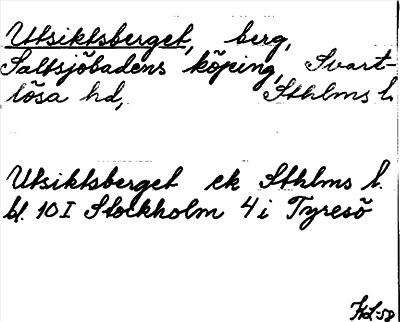 Utsiktsberget, berg,
Saltsjöbadens köping, Svart-
lösa hd, Sthlms l.
Utsiktsberget ek Sthlms l.
bl. 10 I Stockholm 4 i Tyresö